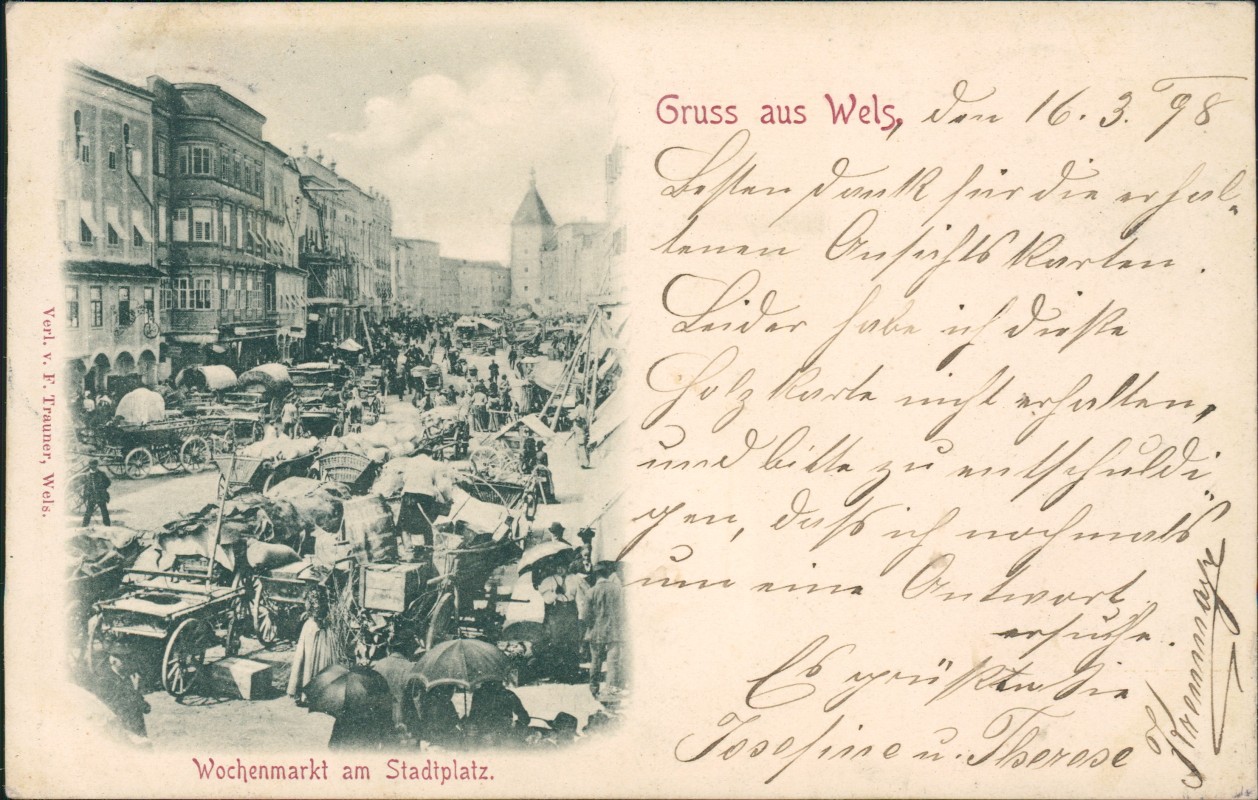 Gruss aus Wels, den 16. 3. 98
Besten Dank für die erhal-
tenen Ansichtskarten.
Leider habe ich diese
Holzkarte nicht erhalten,
und bitte zu entschuldi
gen, daß ich nochmals
um eine Antwort
ersuche.
Es grüßen Sie
Josefine u. Therese
Verl. v. F. Trauner, Wels.
Wochenmarkt am Stadtplatz.